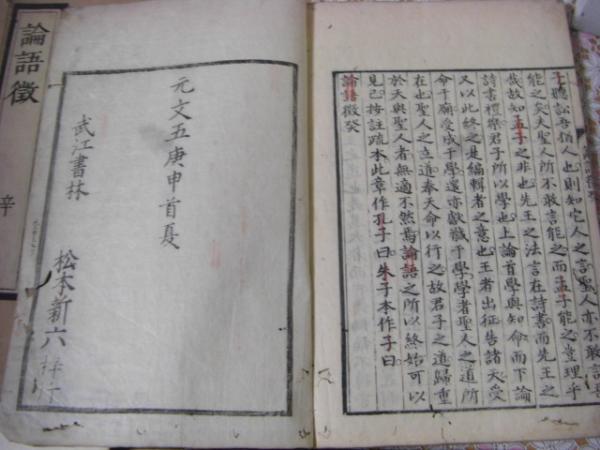 子聽訟吾猶人也則知它人之言聖人亦不敢言
能之矣夫聖人所不敢言能之而孟子能之豈理乎
哉故知孟子之非也先王之法言在詩書而先王之
詩書禮樂君子所學也上論首學與知命而下論
又以此終之是編輯者之意也王者出征告諸天受
命于廟受成于學還亦獻馘于學學者聖人之道所
在也聖人之立道奉天命以行之故君子之道歸重
於天與聖人者無適不然焉論語之所以終始可以
見已按註疏本此章作孔子曰朱子本作子曰
論語徵癸
元文五庚申首夏
武江書林
松本新六梓行
論語徵
辛